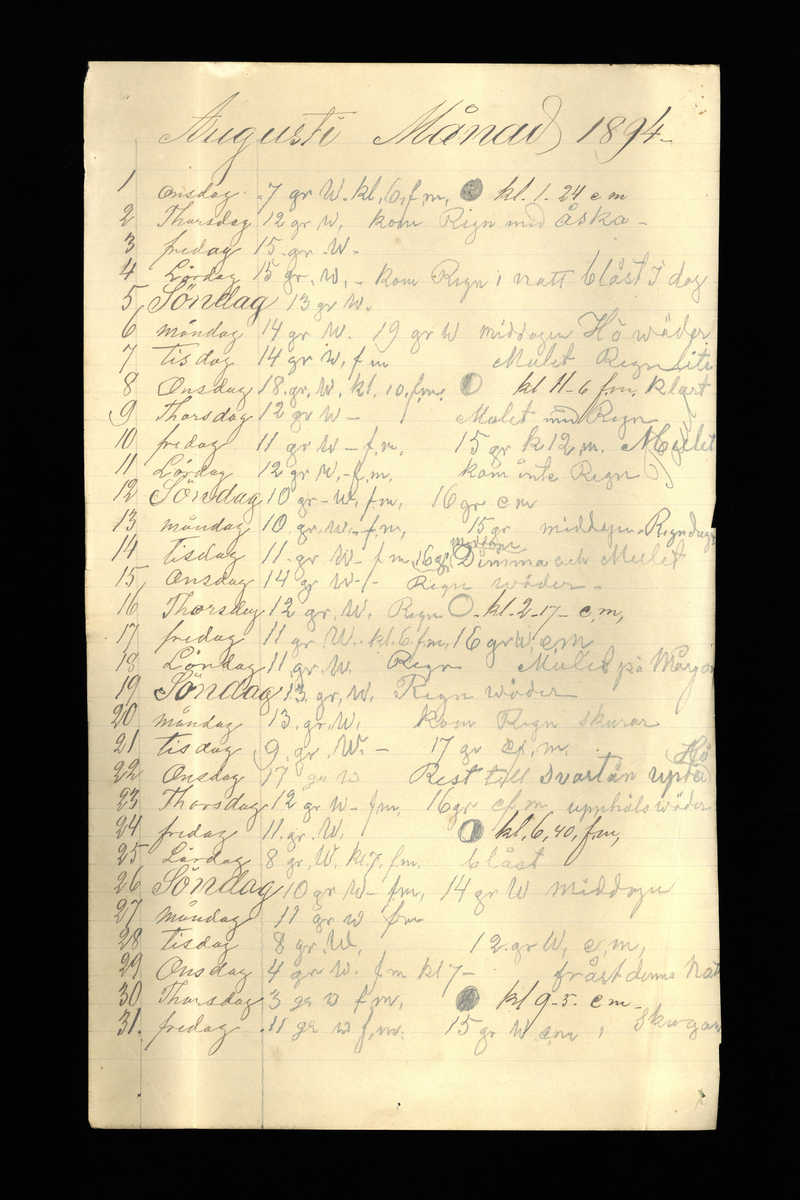 Augusti Månad 1894-
1 onsdag. 7 gr W. kl. 6, f m, kl. 1. 24 e m
2 Thorsdag 12 gr W, kom Regn med åska -
3 fredag 15. gr. W.
4 Lördag 15 gr. W, - kom Regn i natt blåst I dag
5, Söndag 13 gr W.
6 måndag 14 gr W. 19 gr W middagen Hö wäder
7 tisdag 14 gr W, f m Mulet Regn lite
8 Onsdag 18. gr. W. kl. 10, f.m. kl 11-6 f.m. Klart
9 Thorsdag 12 gr W - Mulet med Regn
10 fredag 11 gr W - f. m. 15 gr k 12, m. Mulet
11 Lördag 12 gr W, - f. m. kom inte Regn
12 Söndag 10 gr - W, f m, 16 gr e m
13 måndag 10 gr. w, - f. m, 15 gr middagen. Regn
14 tisdag 11. gr W - f m 16 gr middagen Dimma och Mulet
15, Onsdag 14 gr W - Regn wäder -
16 Thorsdag 12 gr, W, Regn kl. 2-17- e, m,
17, fredag 11 gr W. kl. 6. f. m, 16 gr w, e m
18 Lördag 11, gr, W Regn Mulet på Morgon
19 Söndag 13, gr, W, Regn wäder
20 måndag 13. gr, W, kom Regn skurar
21 tisdag 9. gr. W. - 17 gr m. Hö
22 Onsdag 17 gr w Rest till Svartån
23 Thorsdag 12 gr W - f m, 16 gr m, upphåls wäder
24 fredag 11. gr. W. kl, 6, 40, f, m,
25 Lördag 8 gr, W, kl. 7, f. m. blåst
26 Söndag 10 gr W - f m, 14 gr W middagen
27 måndag 11 gr w f m
28 tisdag 8 gr. W, 12. gr W, e, m,
29, Onsdag 4 gr W. f. m kl 7 - fråst denna Nat
30 Thorsdag 3 gr w f m, kl 9-5. e m -
31. fredag 11 gr w f, m. 15 gr W e m i Skogan